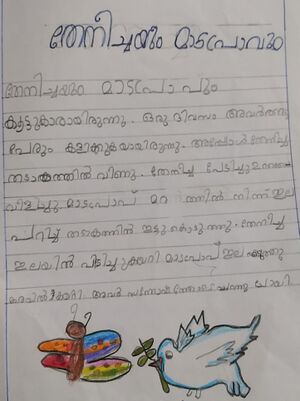 തേനീച്ചയും മാടപ്രാവും
തേനീച്ചയും മാടപ്രാവും
കൂട്ടുകാരായിരുന്നു. ഒരു ദിവസം അവർ
പേരും കളിക്കുകയായിരുന്നു. അപ്പോൾ തേനീച്ച
തടാകത്തിൽ വീണു. തേനീച്ച പേടിച്ചു
വിളിച്ചു. മാടപ്രാവ് നിന്ന് ഇല
പറിച്ച് തടാകത്തിൽ ഇട്ടു കൊടുത്തു. തേനീച്ച
ഇലയിൽ പിടിച്ചുകയറി മാടപ്രാവ് ഇല
കരയിൽ അവർ